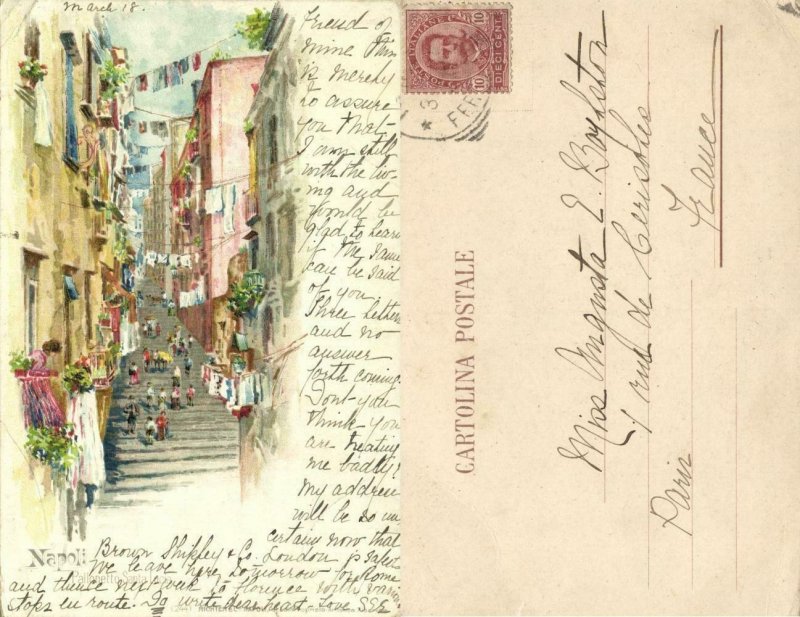 March 18.
Friend of
mine This
is merely
to assure
you that
I am still
with the liv-
ing and
would be
glad to hear
if the same
can be said
of you
Three letters
and no
answer
forth coming.
Dont you
think you
are treating
me badly?
My address
will be so un
certain now that
Brown Shipley & Co. London is safest
We leave here tomorrow for Rome
and thence next week to Florence with
stops en route. Do write dear heart. Love SSE
Napoli
Pallonetto Santa
10 10
DIECI CENT.
CARTOLINA POSTALE
Miss Augusta E. Boylston
1 rue de Cerisoles
Paris
France